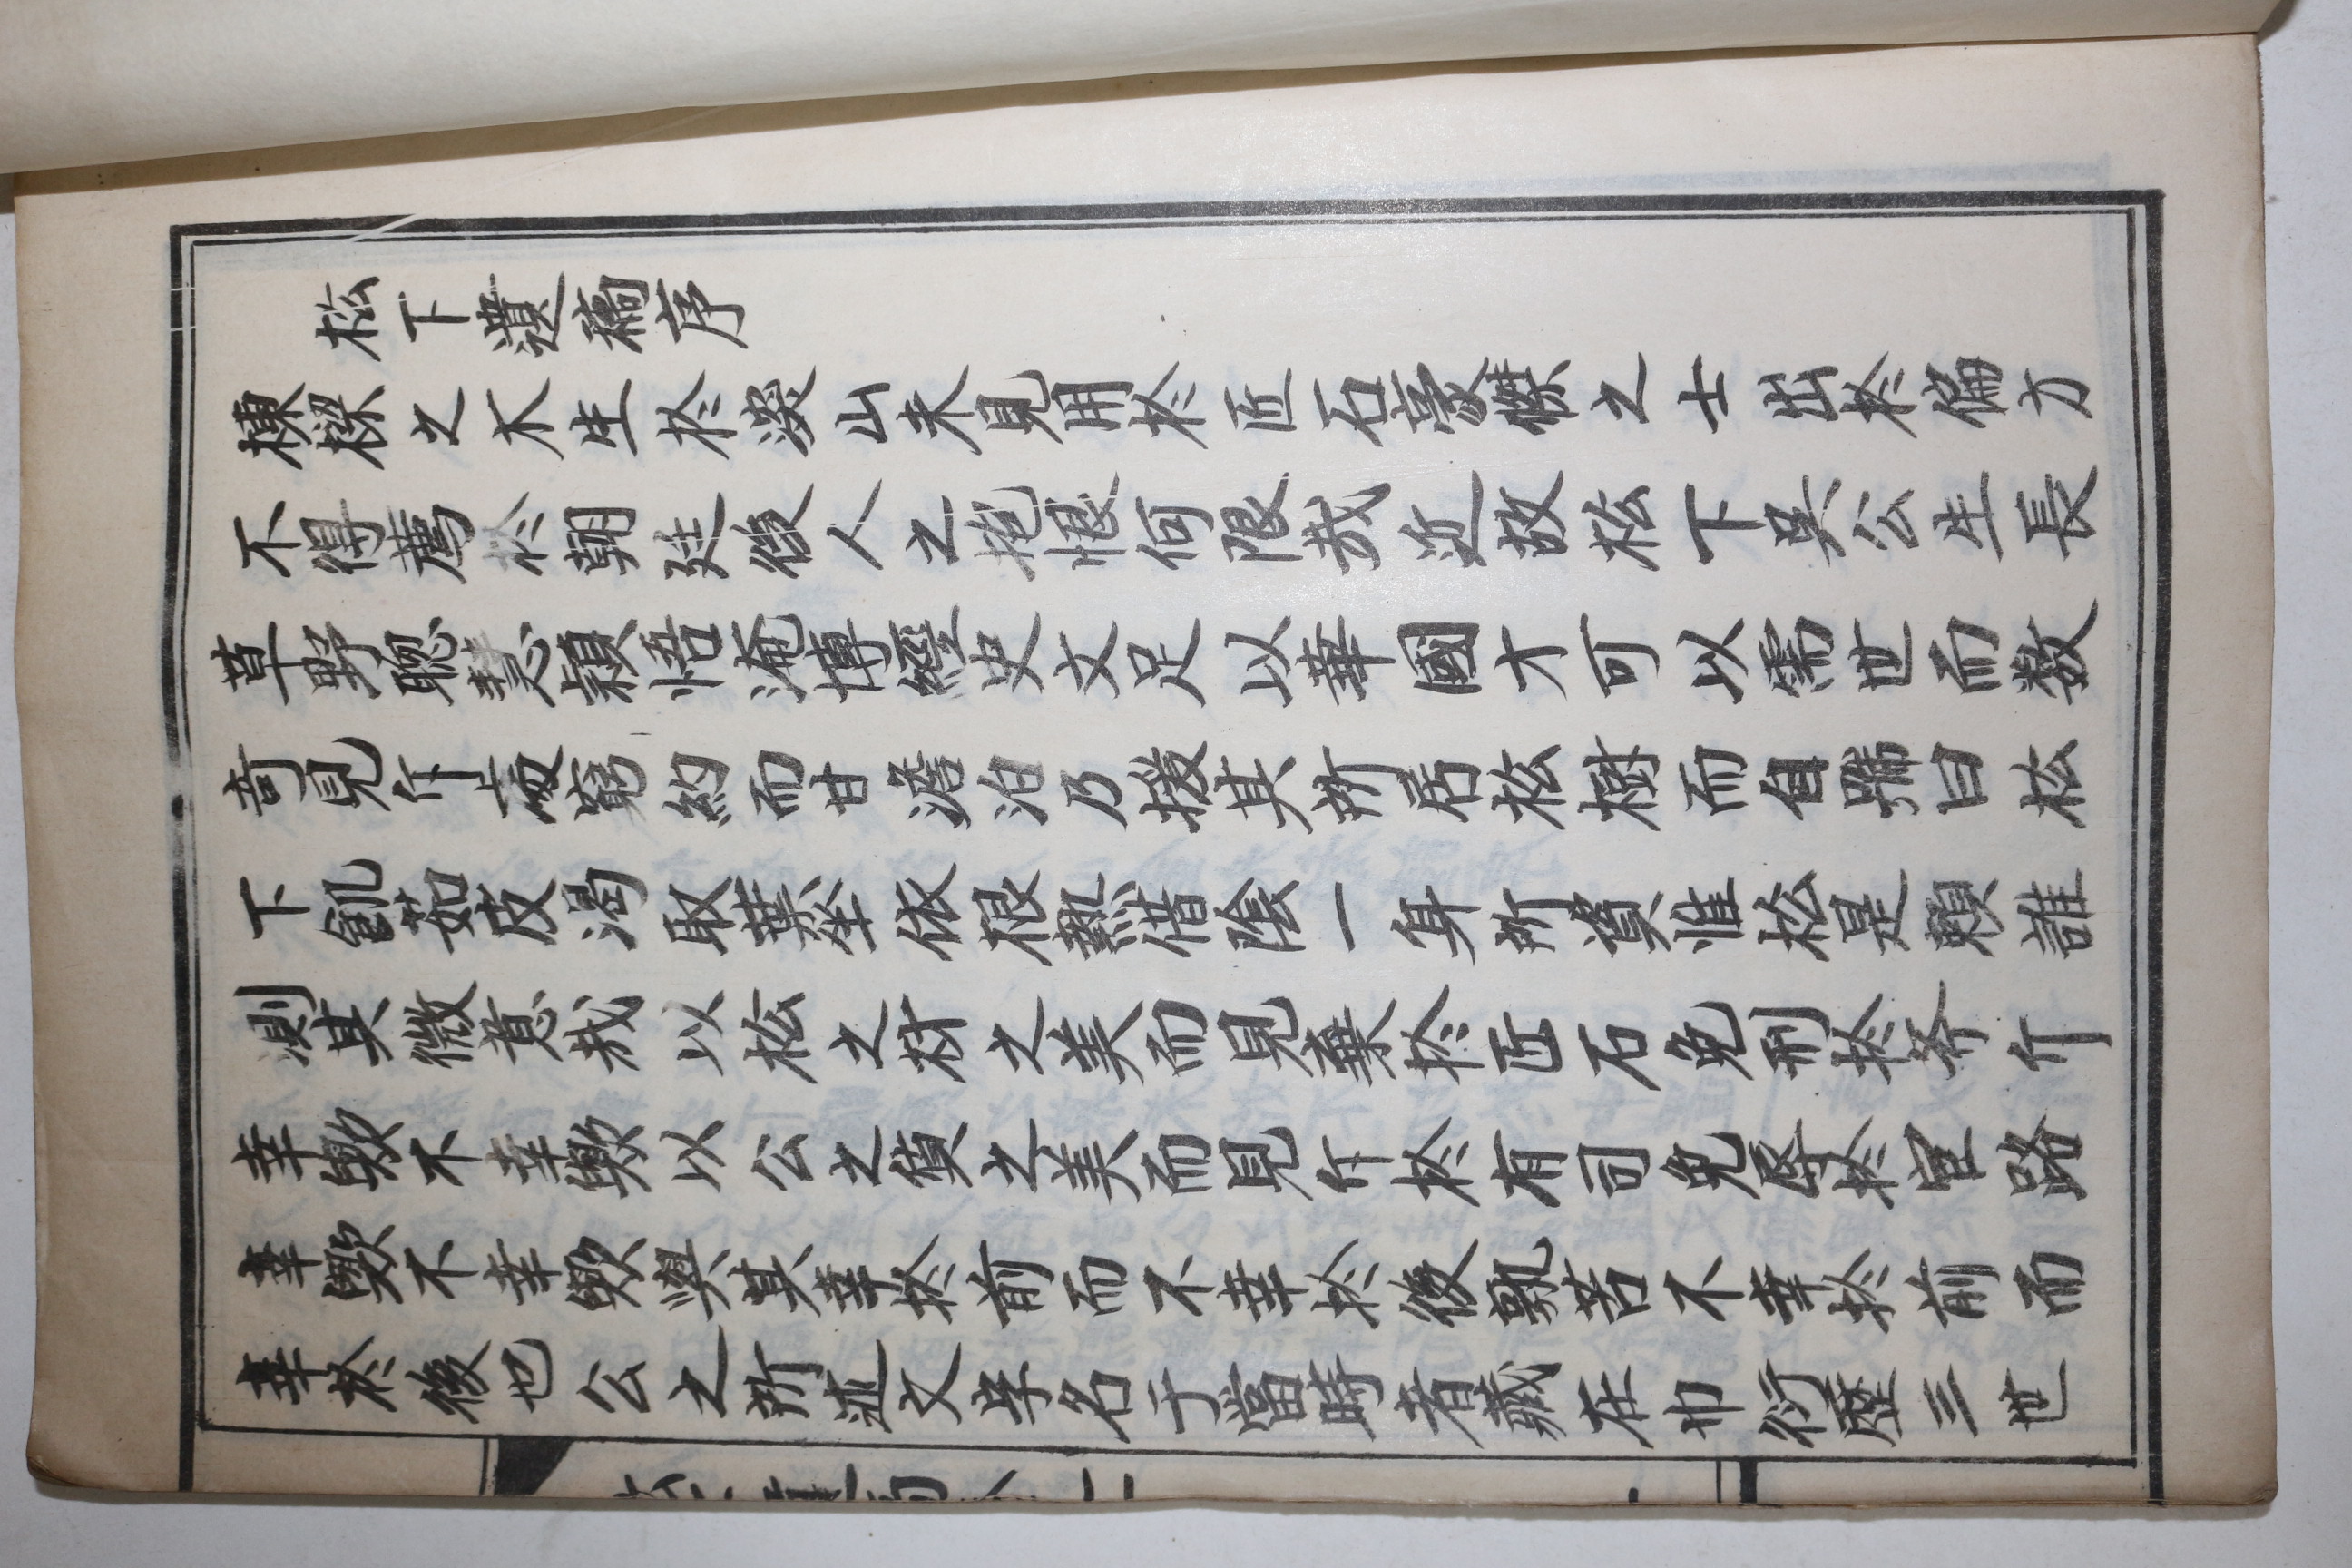 松下遺稿序
棟樑之木生於深山未見用於匠石豪傑之士出於偏方
不得薦於朝廷後人之抱恨何限哉近故松下吳公生長
草野聰慧穎悟淹博經史文足以華國才可以需世而數
奇見仵並窮約而甘澹泊乃援其所居松樹而自號曰松
下飢茹皮渴取葉坐依根熱借陰一身所資惟松是賴誰
測其微意哉以松之材之美而見棄於匠石免刑於斧斤
幸歟不幸歟以公之質之美而見仵於有司免辱於宦路
幸歟不幸歟與其幸於前而不幸於後孰若不幸於前而
幸於後也公之所述文字名于當時者藏在巾衍歷三世